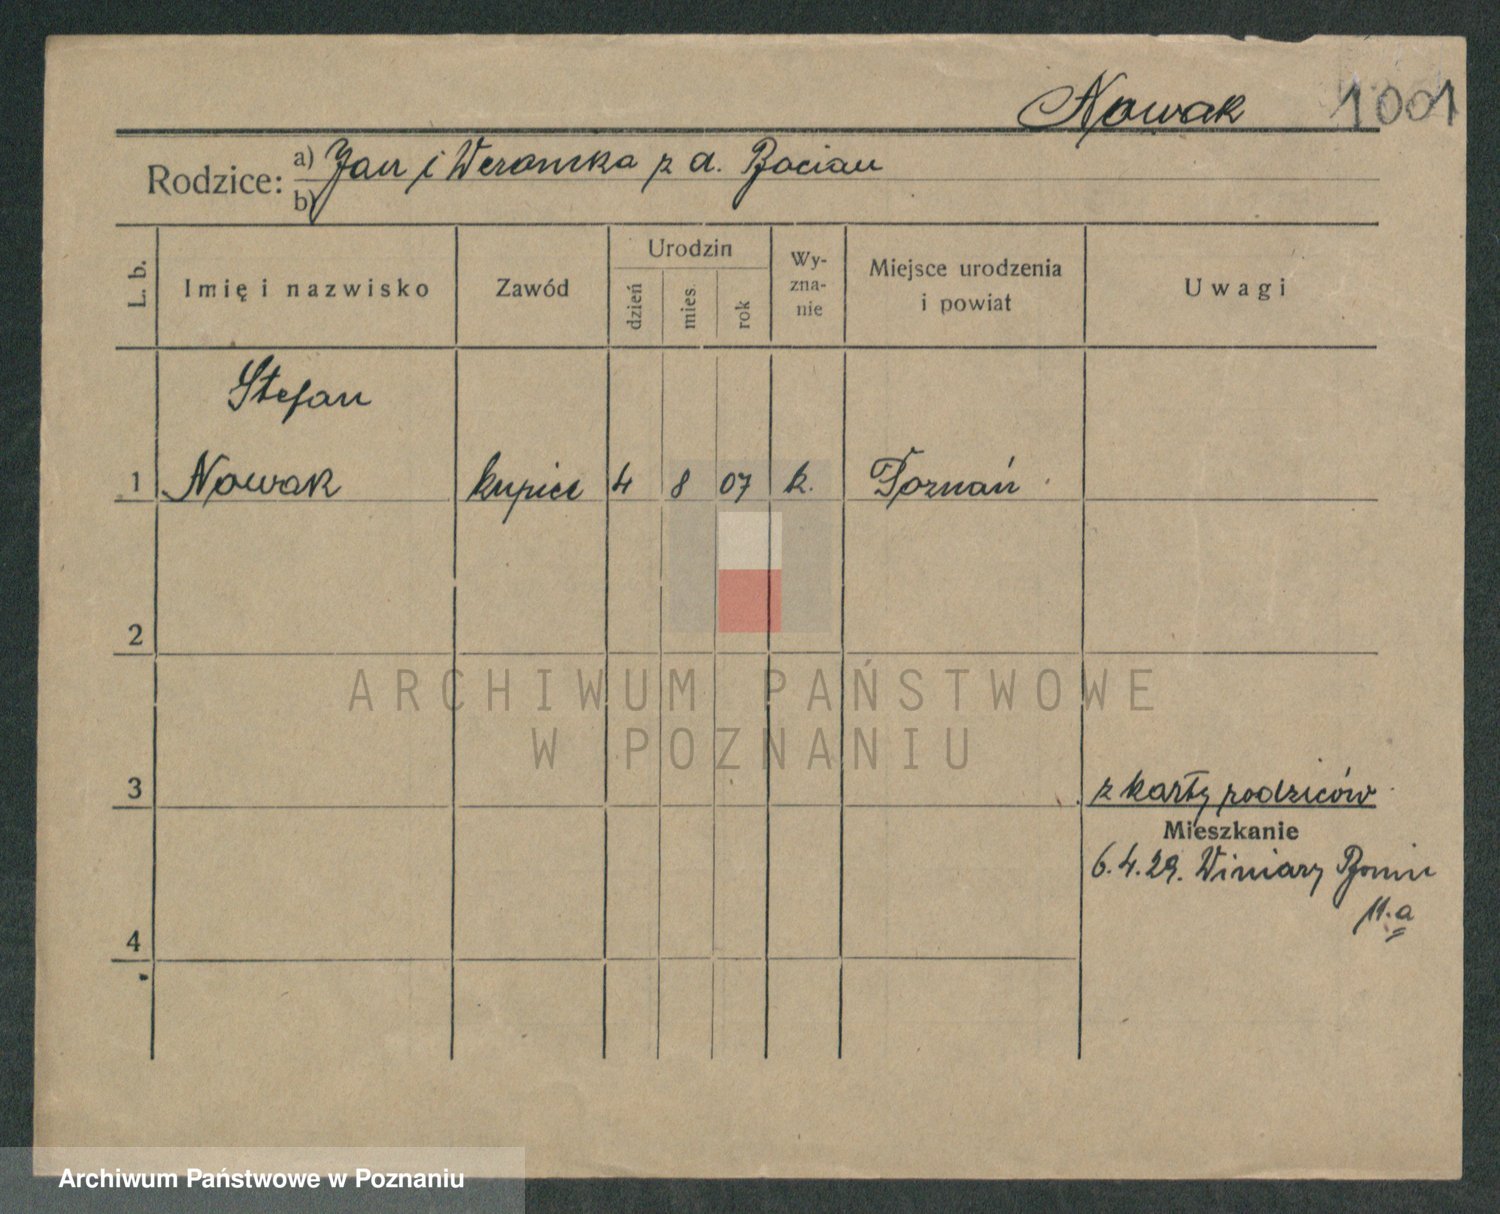 Nowak 1001
Rodzice: a) Jan i Weronika z d. Bocian
b)
L. b. Imię i nazwisko Zawód Urodzin dzień mies. rok Wy-zna-nie Miejsce urodzenia i powiat Uwagi
Stefan
1 Nowak kupiec 4 8 07 k. Poznań
2
ARCHIWUM PAŃSTWOWE
W POZNANIU
3 z karty rodziców
Mieszkanie
6.4.29. Winiary
11.a
4
Archiwum Państwowe w Poznaniu